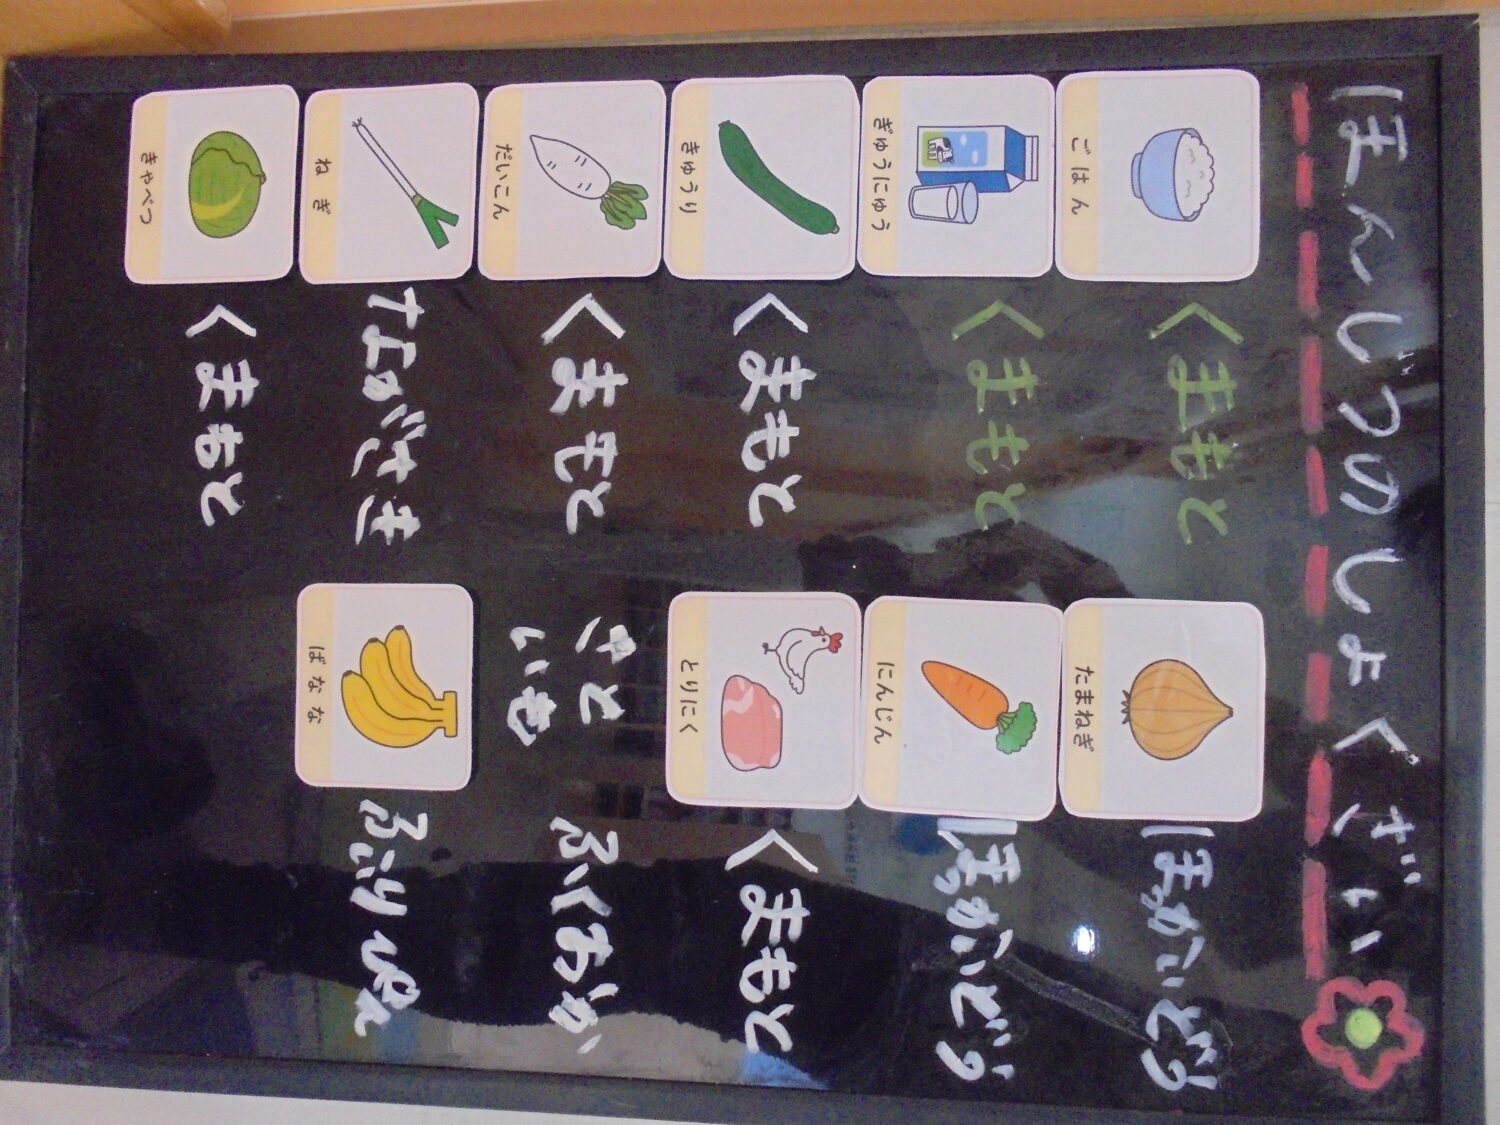 ほんじつのしょくざい
ごはん くまもと たまねぎ ほっかいどう
ぎゅうにゅう くまもと にんじん ほっかいどう
きゅうり くまもと とりにく くまもと
だいこん くまもと さと いも ふくおか
ねぎ ながさき ばなな ふぃりぴん
きゃべつ くまもと